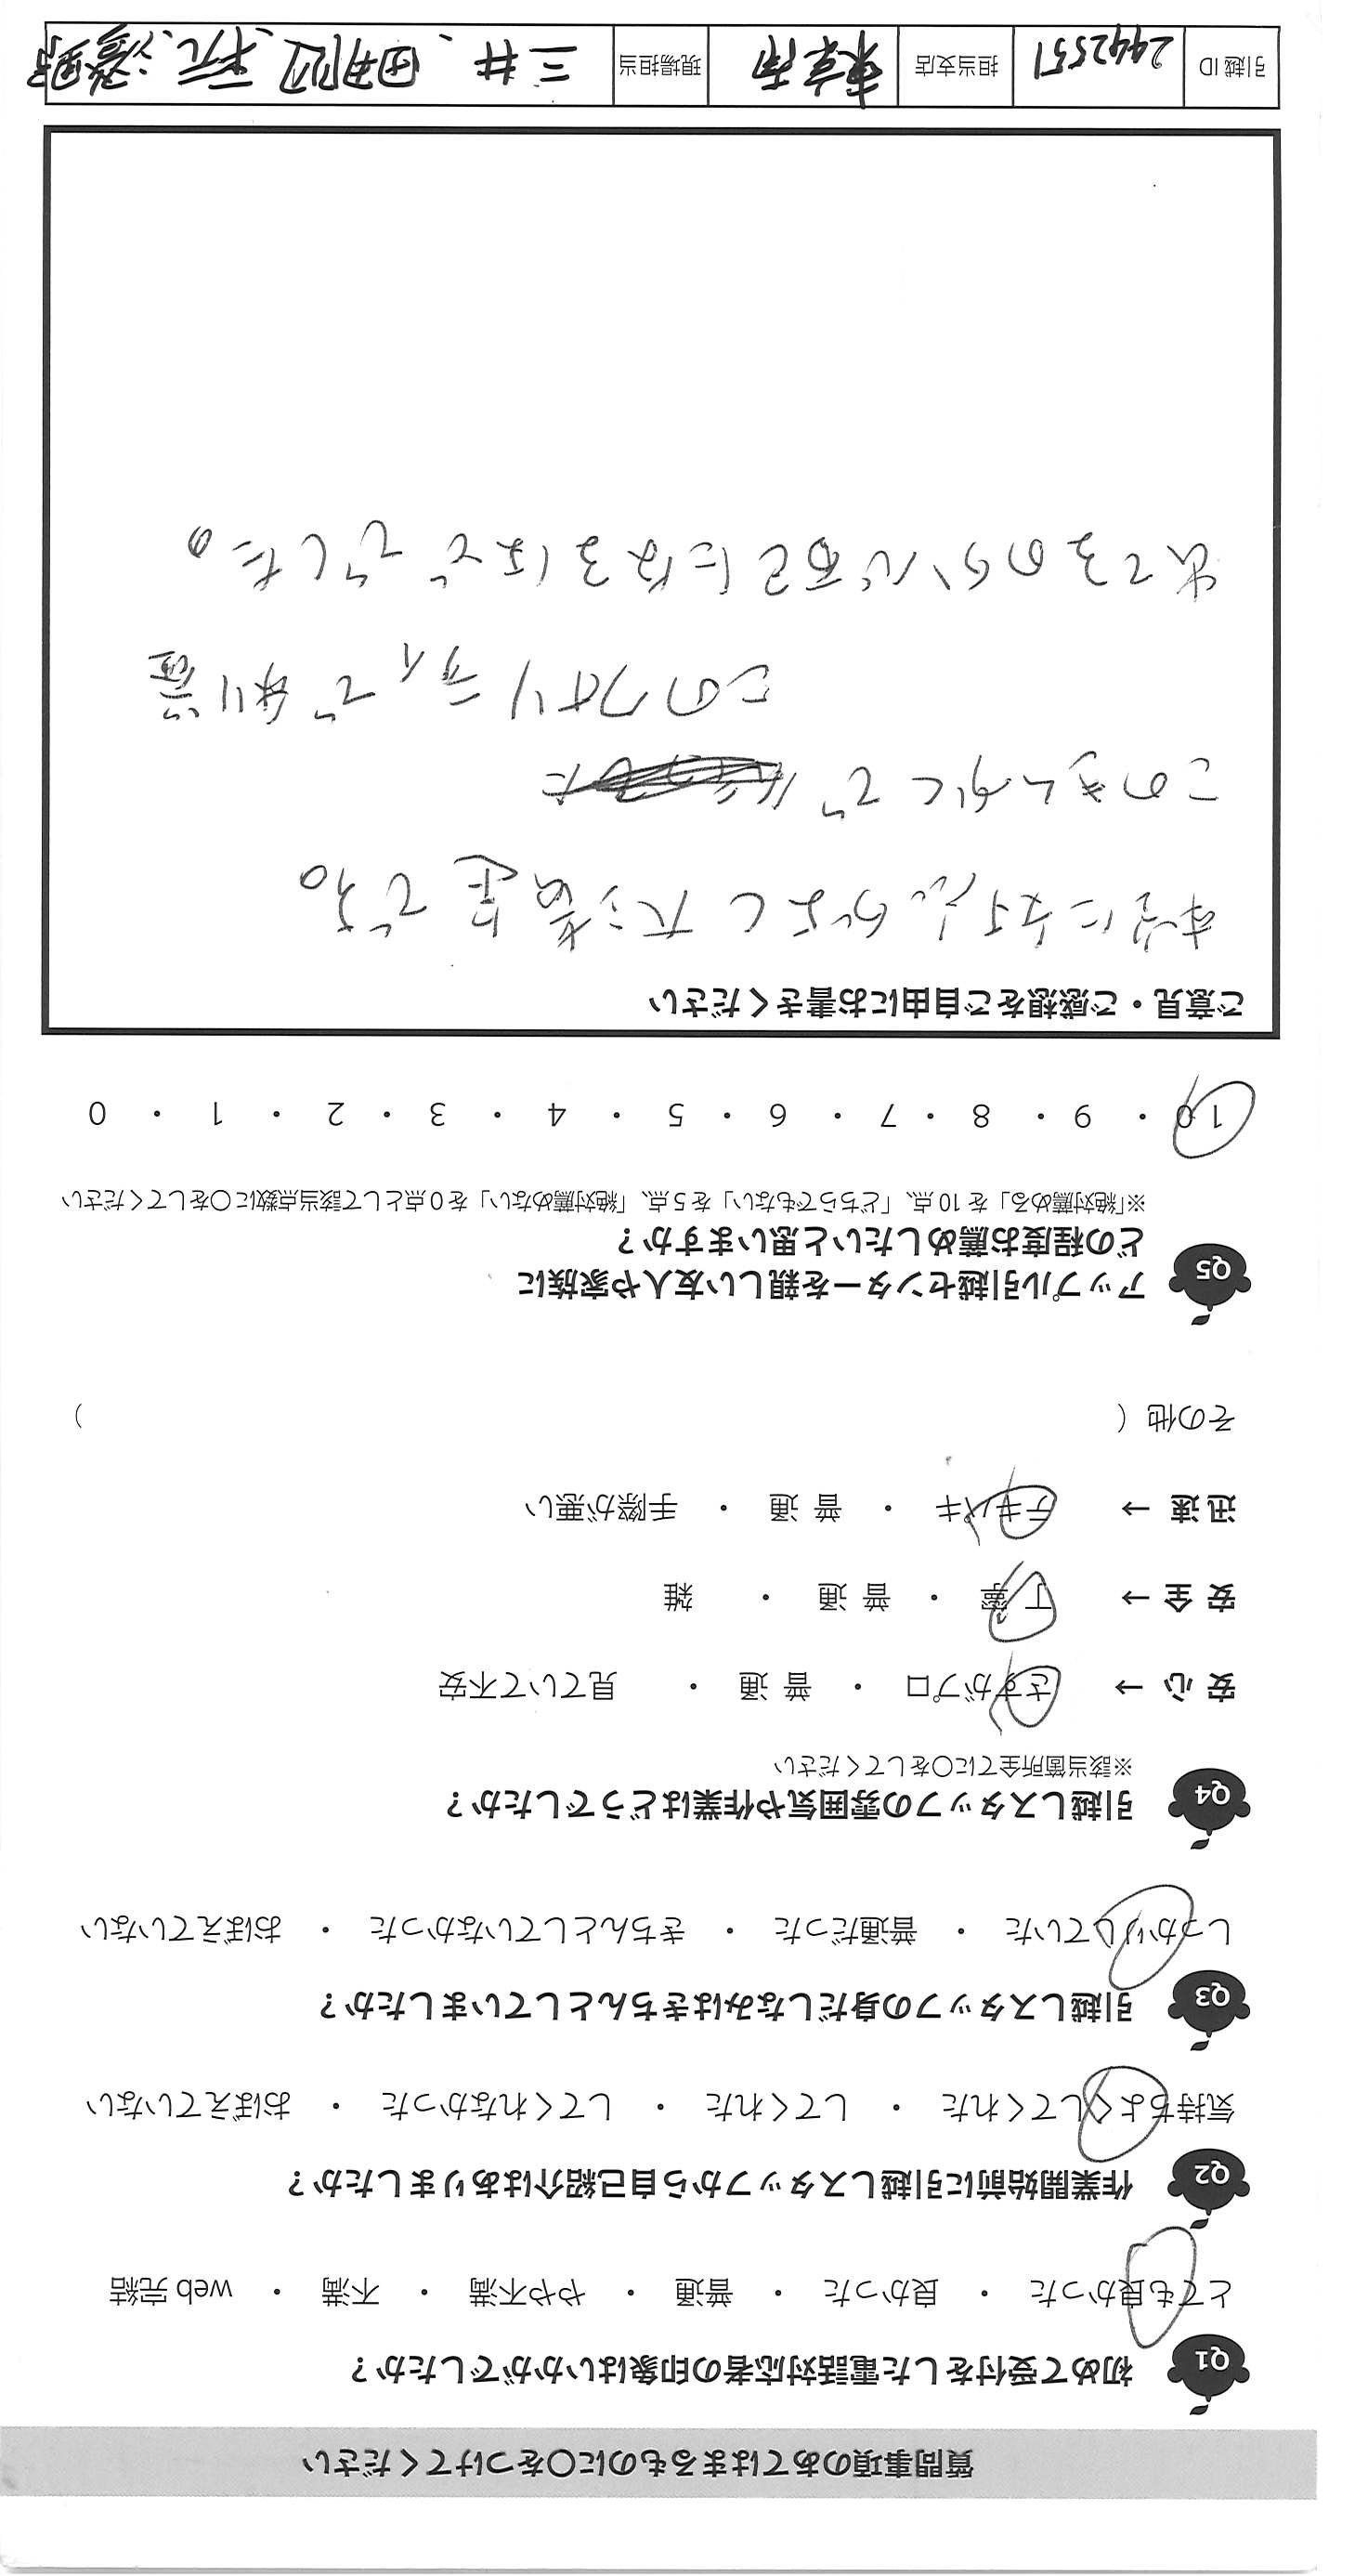 質問事項のあてはまるものに〇をつけてください
Q1 初めて受付をした電話対応者の印象はいかがでしたか？
とても良かった ・ 良かった ・ 普通 ・ やや不満 ・ 不満 ・ web 完結
Q2 作業開始前に引越しスタッフから自己紹介はありましたか？
気持ちよくしてくれた ・ してくれた ・ してくれなかった ・ おぼえていない
Q3 引越しスタッフの身だしなみはきちんとしていましたか？
しっかりしていた ・ 普通だった ・ きちんとしていなかった ・ おぼえていない
Q4 引越しスタッフの雰囲気や作業はどうでしたか？
※該当箇所全てに〇をしてください
安 心 → さすがプロ ・ 普 通 ・ 見ていて不安
安 全 → 丁 寧 ・ 普 通 ・ 雑
迅 速 → テキパキ ・ 普 通 ・ 手際が悪い
その他 ( )
Q5 アップル引越センターを親しい友人や家族に
どの程度お薦めしたいと思いますか？
※「絶対薦める」を 10 点、「どちらでもない」を 5 点、「絶対薦めない」を 0 点として該当点数に〇をしてください
10 ・ 9 ・ 8 ・ 7 ・ 6 ・ 5 ・ 4 ・ 3 ・ 2 ・ 1 ・ 0
ご意見・ご感想をご自由にお書きください
本当に がよく大満足です。
この で
このクオリティで利益
出てるのか心配になるほどでした。
引越 ID 2442551 担当支店 東京南 現場担当 三井、田邊、